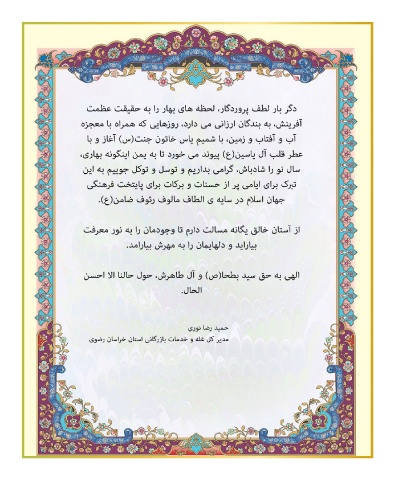 دگر بار لطف پروردگار، لحظه های بهار را به حقیقت عظمت
آفرینش، به بندگان ارزانی می دارد، روزهایی که همراه با معجزه
آب و آفتاب و زمین، با شمیم یاس خاتون جنت(س) آغاز و با
عطر قلب آل یاسین(ع) پیوند می خورد تا به یمن اینگونه بهاری،
سال نو را شادباش، گرامی بداریم و توسل و توکل جوییم به این
تبرک برای ایامی پر از حسنات و برکات برای پایتخت فرهنگی
جهان اسلام در سایه ی الطاف مالوف رئوف ضامن(ع).
از آستان خالق یگانه مسالت دارم تا وجودمان را به نور معرفت
بیاراید و دلهایمان را به مهرش بیارامد.
الهی به حق سید بطحا(ص) و آل طاهرش، حول حالنا الا احسن
الحال.
حمید رضا نوری
مدیر کل غله و خدمات بازرگانی استان خراسان رضوی